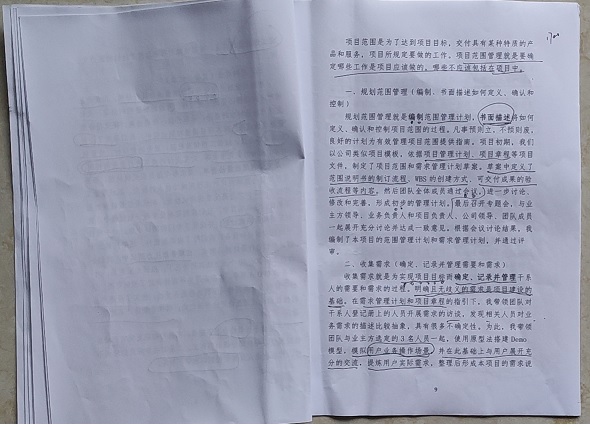 项目范围是为了达到项目目标，交付具有某种特质的产
品和服务，项目所规定要做的工作。项目范围管理就是要确
定哪些工作是项目应该做的，哪些不应该包括在项目中。
一、规划范围管理（编制、书面描述如何定义、确认和
控制）
规划范围管理就是编制范围管理计划，书面描述将如何
定义、确认和控制项目范围的过程。凡事预则立，不预则废，
良好的计划为有效管理项目范围提供指南。项目初期，我们
以公司类似项目模板，依据项目管理计划、项目章程等项目
文件，制定了项目范围和需求管理计划草案。草案中定义了
范围说明书的制订流程、WBS 的创建方式、可交付成果的验
收流程等内容。然后团队全体成员通过会议，进一步讨论、
修改和完善，形成初步的管理计划，最后召开专题会，与业
主方领导、业务负责人和项目负责人、公司领导、团队成员
一起展开充分讨论并达成一致意见。根据会议讨论结果，我
编制了本项目的范围管理计划和需求管理计划，并通过评
审。
二、收集需求（确定、记录并管理需要和需求）
收集需求就是为实现项目目标而确定、记录并管理干系
人的需要和需求的过程。明确且无歧义的需求是项目建设的
基础。在需求管理计划和项目章程的指引下，我带领团队对
干系人登记册上的人员开展需求的访谈，发现相关人员对业
务需求的描述比较抽象，具有很多不确定性。为此，我带领
团队与业主方选定的 3 名人员一起，使用原型法搭建 Demo
模型，模拟用户业务操作场景，并在此基础上与用户展开充
分的交流，提炼用户实际需求，整理后形成本项目的需求说
9